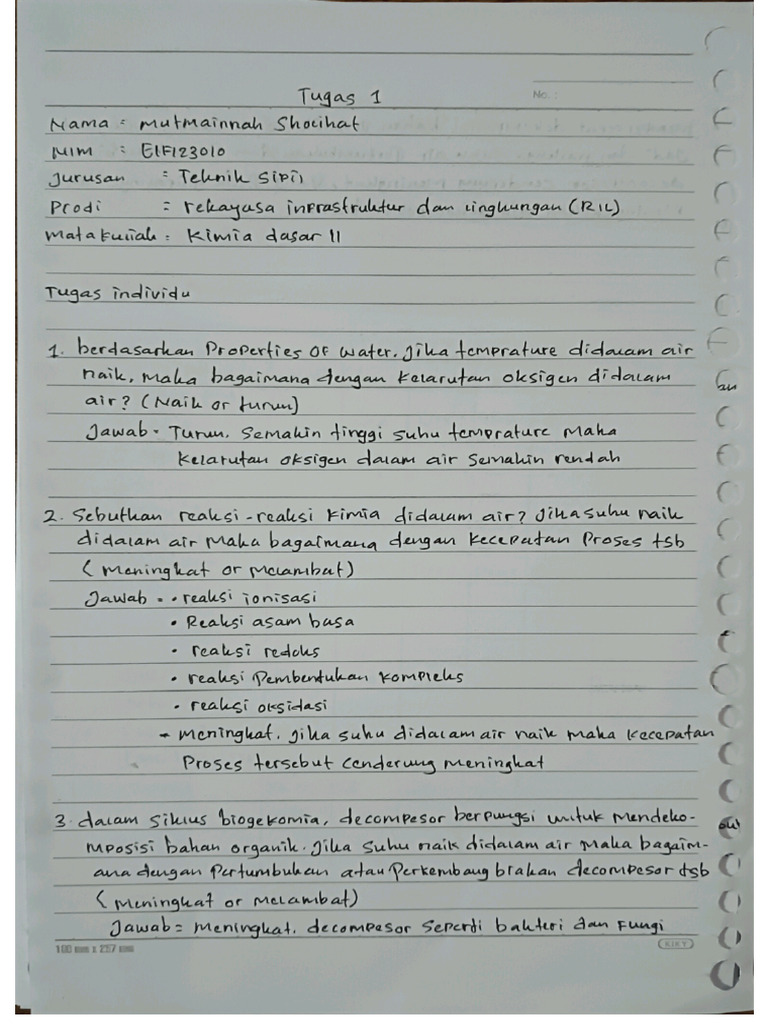 Tugas 1
No. :
Nama = Mutmainnah Shocihat
NIM : E1F123010
Jurusan : Teknik Sipil
Prodi = rekayasa inprastruktur dan lingkungan (RIL)
Matakuliah : Kimia dasar II
Tugas individu
1. berdasarkan Properties OF water. Jika temprature didalam air
naik, maka bagaimana dengan kelarutan oksigen didalam
air? (Naik or turun)
Jawab = Turun. Semakin tinggi suhu temprature maka
kelarutan oksigen dalam air semakin rendah
2. Sebutkan reaksi-reaksi kimia didalam air? Jika suhu naik
didalam air maka bagaimana dengan kecepatan Proses tsb
(Meningkat or Melambat)
Jawab = • reaksi ionisasi
• Reaksi asam basa
• reaksi redoks
• reaksi Pembentukan kompleks
• reaksi oksidasi
- meningkat. Jika suhu didalam air naik maka kecepatan
Proses tersebut cenderung meningkat
3. dalam siklus biogekomia, decompesor berpungsi untuk mendeko-
mposisi bahan organik. Jika suhu naik didalam air maka bagaim-
ana dengan Pertumbuhan atau Perkembangbrakan decompesor tsb
(meningkat or melambat)
Jawab = meningkat. decompesor seperti bakteri dan Fungi
KIKY